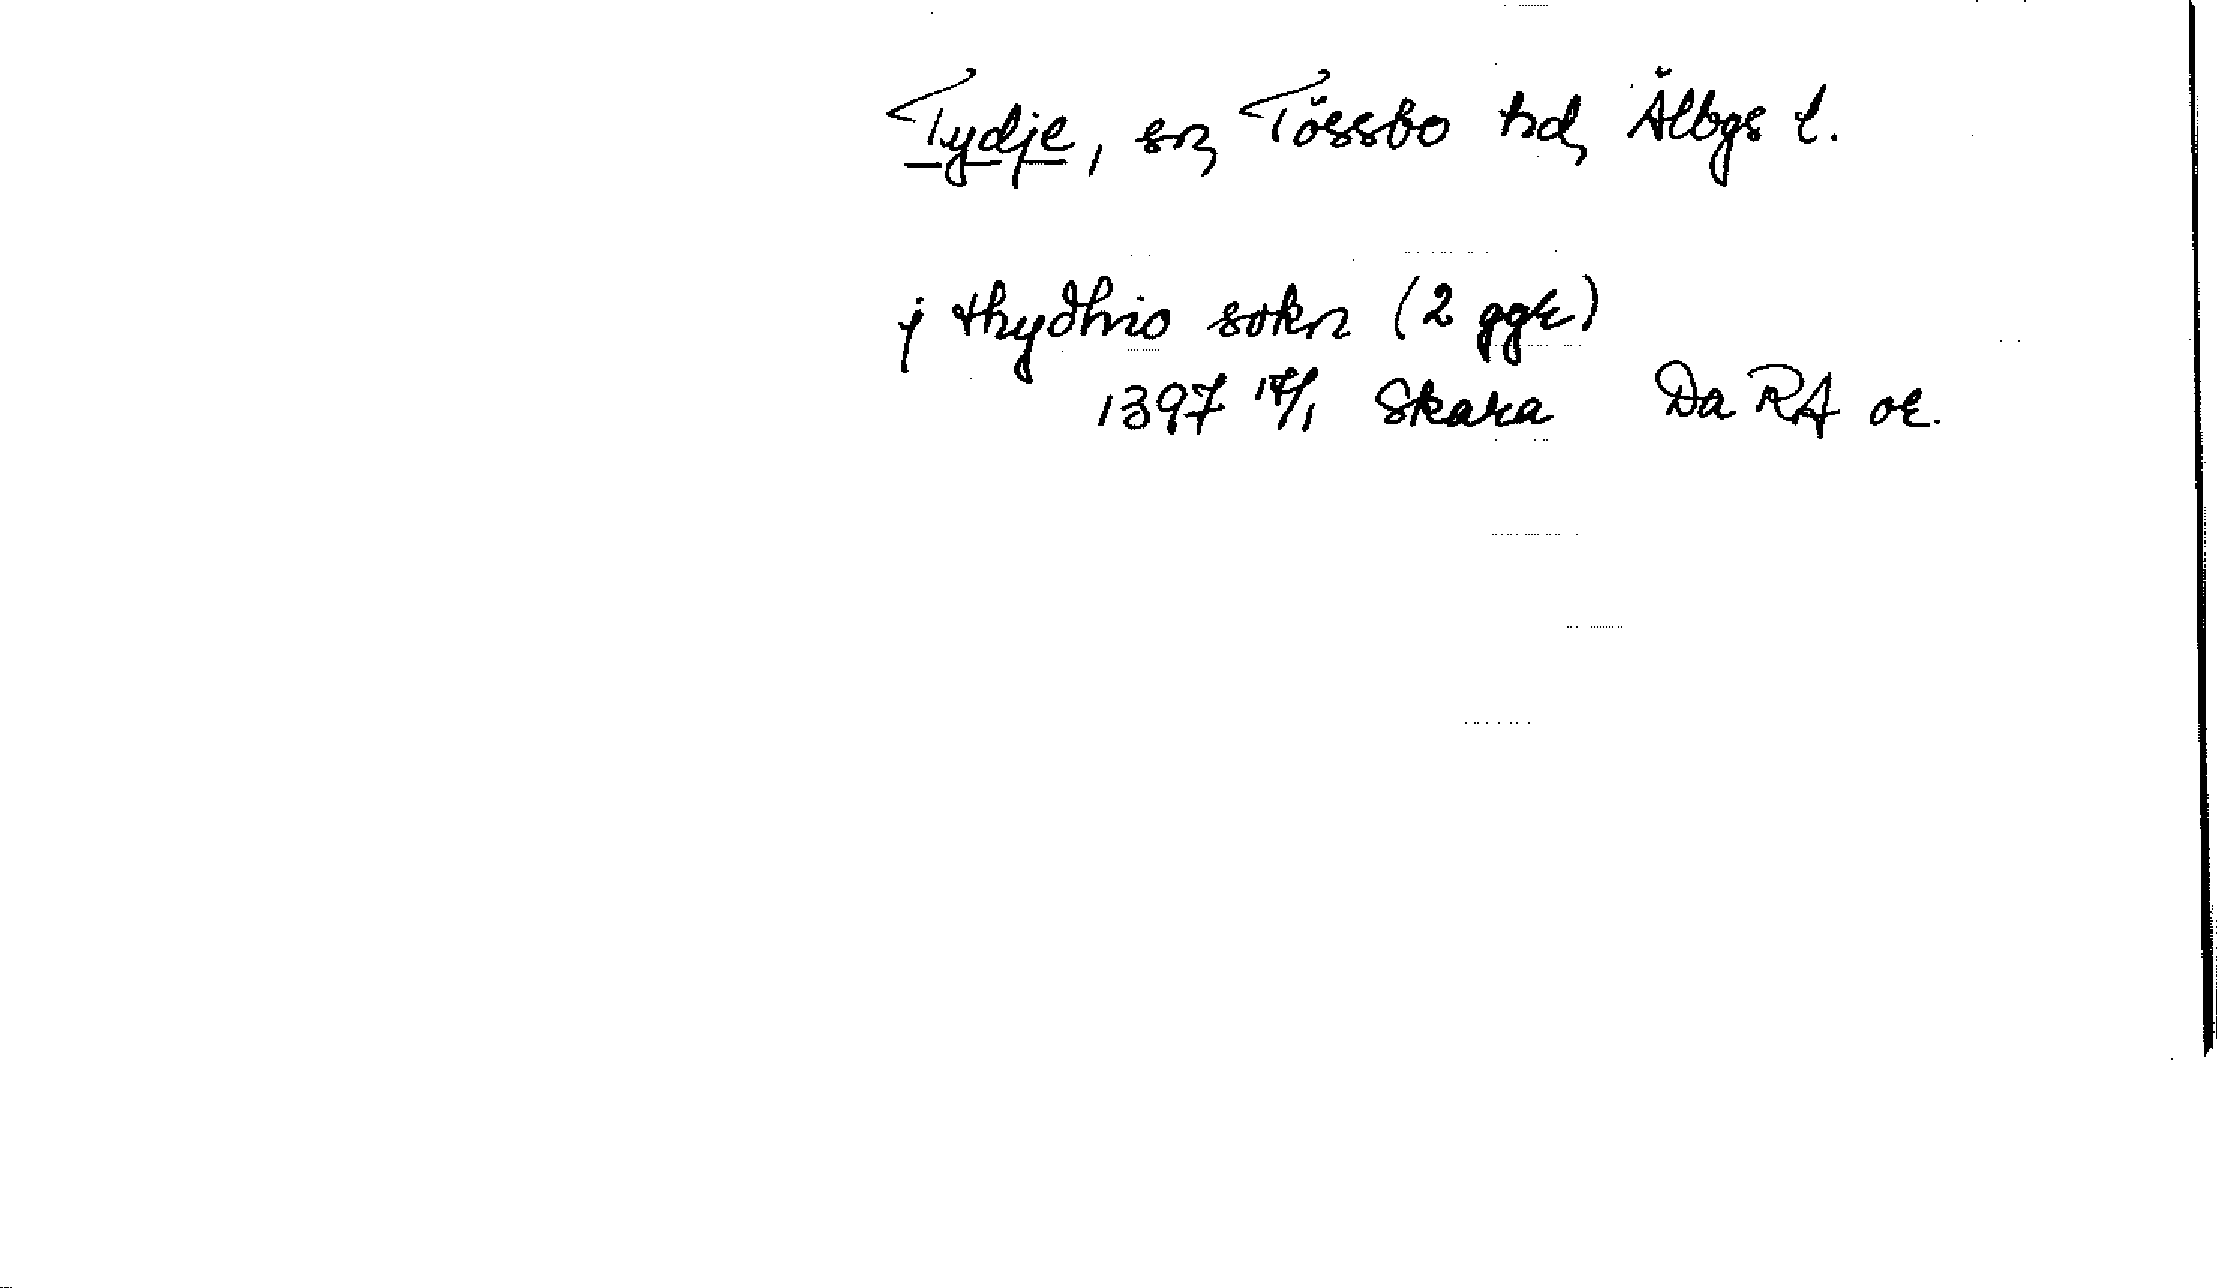 Tydje, sn, Tössbo hd, Älbgs l.
j thydhio sokn (2 ggr)
1397 17/1 Skara Da RA or.